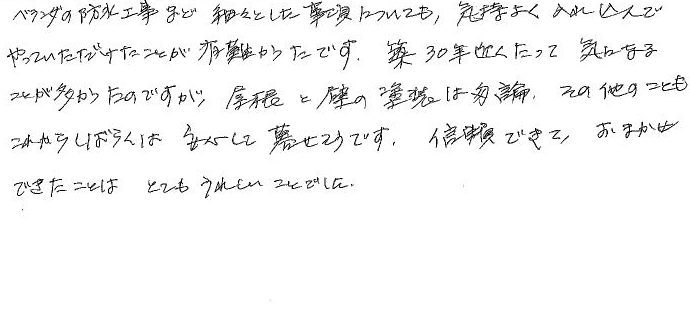 ベランダの防水工事など 細々とした事項についても、気持よく 入れ込んで
やっていただけたことが 有難かったです. 築30年近くたって 気になる
ことが多かったのですが、屋根と壁の塗装は勿論、その他のことも
これからしばらくは 安心して暮せそうです. 信頼できて、おまかせ
できたことは とてもうれしいことでした.